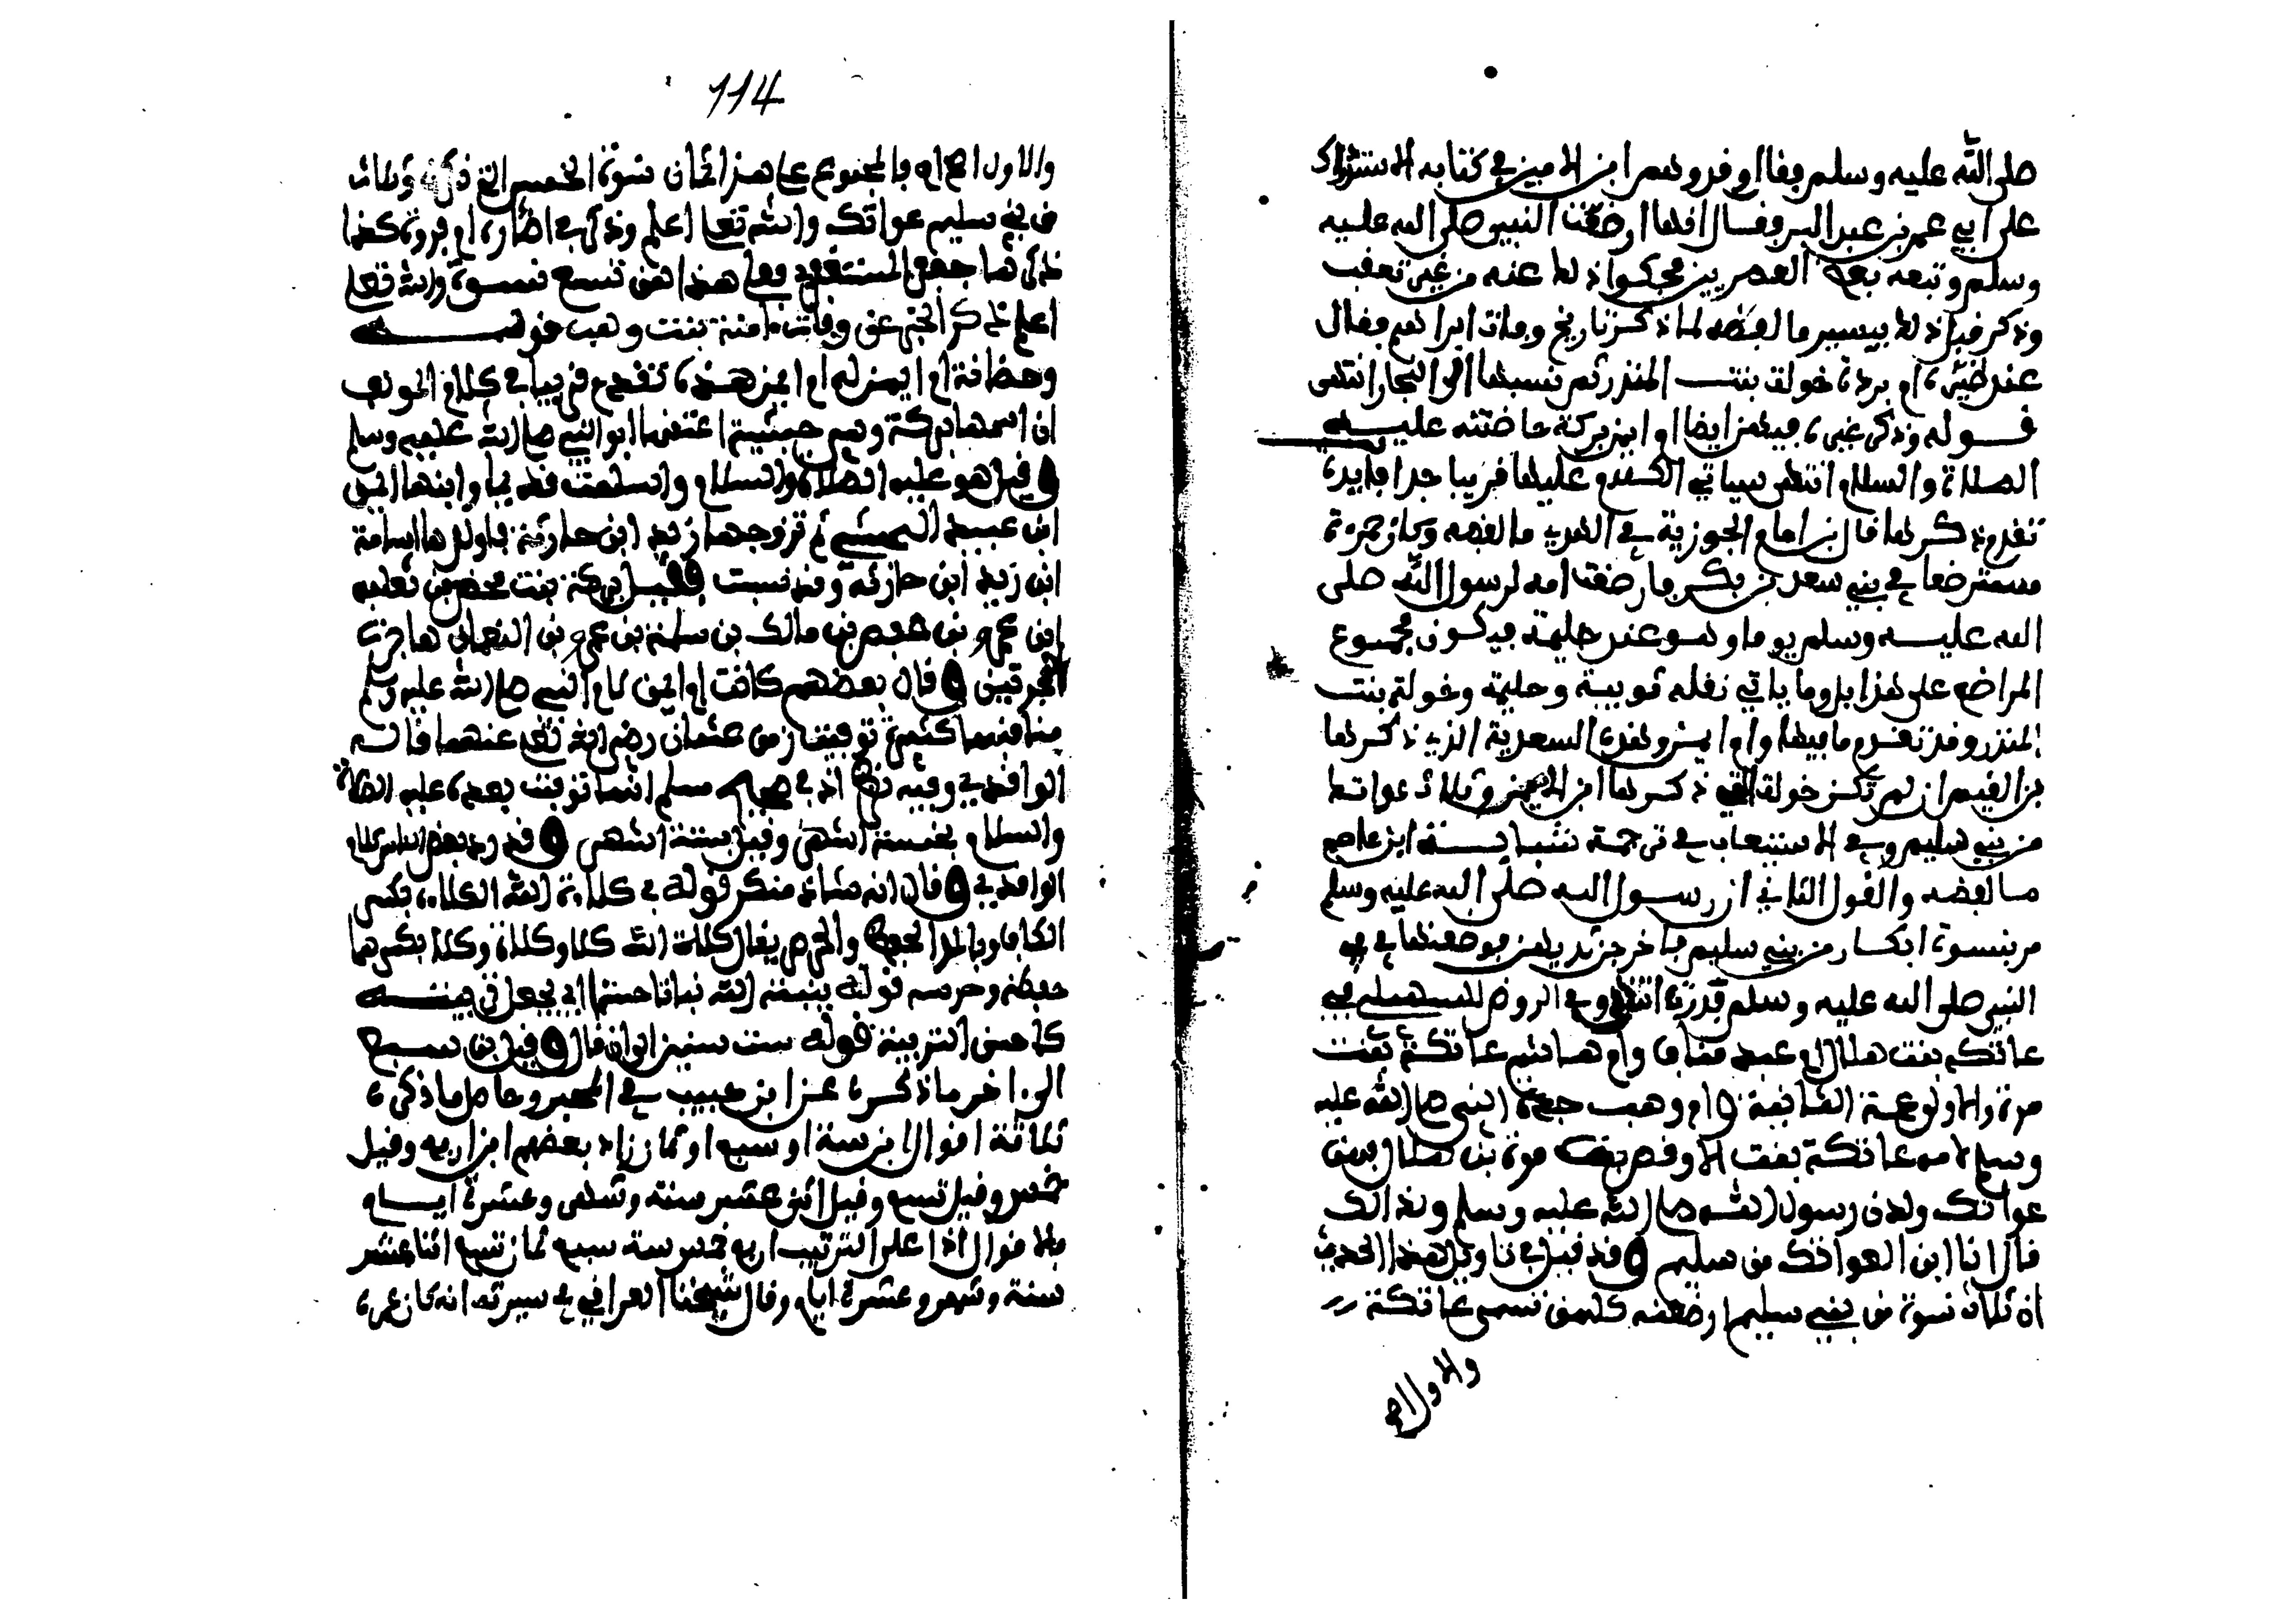 صلى الله عليه وسلم فقال وقد وهم ابن الامين في كتابه الاستدراك
على ابي عمر بن عبد البر فقال انها ارضعت النبي صلى الله عليه
وسلم وتبعه بعض العصريين فحكوا ذلك عنه من غير تعقب
وذكر قبل ذلك بيسير ما لفظه لما ذكر تاريخ وفات ابراهيم فقال
عند ظئره ام بردة خولة بنت المنذر ثم نسبها الى النجار انتهى
قوله وذكر غيره فيهن ايضا ام ايمن بركة حاضنته عليه
الصلاة والسلام انتهى سياتي الكلام عليها قريبا جدا فايدة
تقدم ذكرها قال بن امام الجوزية في الهدي ما لفظه وكان حمزة
مسترضعا في بني سعد بن بكر فارضعت امه لرسول الله صلى
الله عليه وسلم يوما وهو عند حليمة فيكون مجموع
المراضع على هذا بل وما ياتي نقله ثويبة وحليمة وخولة بنت
المنذر وقد تقدم ما فيها وام ايمن وهذه السعدية الذي ذكرها
بن القيم ان لم تكن خولة التي ذكرها ابن الامين وثلاث عواتك
من بني سليم وفي الاستيعاب في ترجمة سيابة ابن عاصم
ما لفظه والقول الثاني ان رسول الله صلى الله عليه وسلم
مر بنسوة ابكار من بني سليم فاخرجن ثديهن فوضعنها في في
النبي صلى الله عليه وسلم فدرت انتهى وفي الروض للسهيلي
عاتكة بنت هلال ام عبد مناف وام هاشم عاتكة بنت
مرة والاولى عمة الثانية وام وهب جد النبي صلى الله عليه
وسلم لامه عاتكة بنت الاوقص بن مرة بن هلال فهن
عواتك ولدن رسول الله صلى الله عليه وسلم ولذالك
قال انا ابن العواتك من سليم وقد قيل في تاويل هذا الحديث
ان ثلاث نسوة من بني سليم ارضعنه كلهن تسمى عاتكة
والاول اصح
114
والاول اصح فالمجموع على هذا ثمان نسوة الخمس التي ذكرت وثلاث
من بني سليم عواتك والله تعالى اعلم وذكر في اظاره ام فروة كذا
ذكرها جعفر المستغفري فعلى هذا هن تسع نسوة والله تعالى
اعلم ذكر الخبر عن وفات امنة بنت وهب قوله
وحضانة ام ايمن له ام ايمن هذه تقدم قريبا في كلام المولف
ان اسمها بركة وهي حبشية اعتقها ابو النبي صلى الله عليه وسلم
وقيل هو عليه الصلاة والسلام واسلمت قديما وابنها ايمن
ابن عبيد الحبشي ثم تزوجها زيد ابن حارثة فاولدها اسامة
ابن زيد ابن حارثة وقد نسبت فقيل بركة بنت محصن بن ثعلبة
ابن عمرو بن حصن بن مالك بن سلمة بن عمرو بن النعمان هاجرت
الهجرتين وقال بعضهم كانت ام ايمن لام النبي صلى الله عليه وسلم
مناقبها كثيرة توفيت زمن عثمان رضي الله تعالى عنهما قاله
الواقدي وفيه نظر اذ في صحيح مسلم انها توفيت بعده عليه الصلاة
والسلام بخمسة اشهر وقيل بستة اشهر وقد رد بعض الناس كلام
الواقدي وقال انه شاذ منكر قوله في كلاءة الله الكلاءة بكسر
الكاف وبالمد الحفظ والحرص يقال كلات الله كلا وكلاة وكلا بكسرهما
حفظه وحرسه قوله ينبته الله نباتا حسنا اي يجعل نبته
كاحسن التربية قوله ست سنين الى ان قال وقيل بن سبع
الى اخر ما ذكره عن ابن حبيب في المحبر وحاصل ما ذكره
ثلاثة اقوال ابن ستة او سبع او ثمان زاد بعضهم ابن اربع وقيل
خمس وقيل تسع وقيل اثنى عشر سنة وشهر وعشرة ايام
فالاقوال اذا على الترتيب اربع خمس ستة سبع ثمان تسع اثنا عشر
سنة وشهر وعشرة ايام وقال شيخنا العراقي في سيرته انه كان عمره